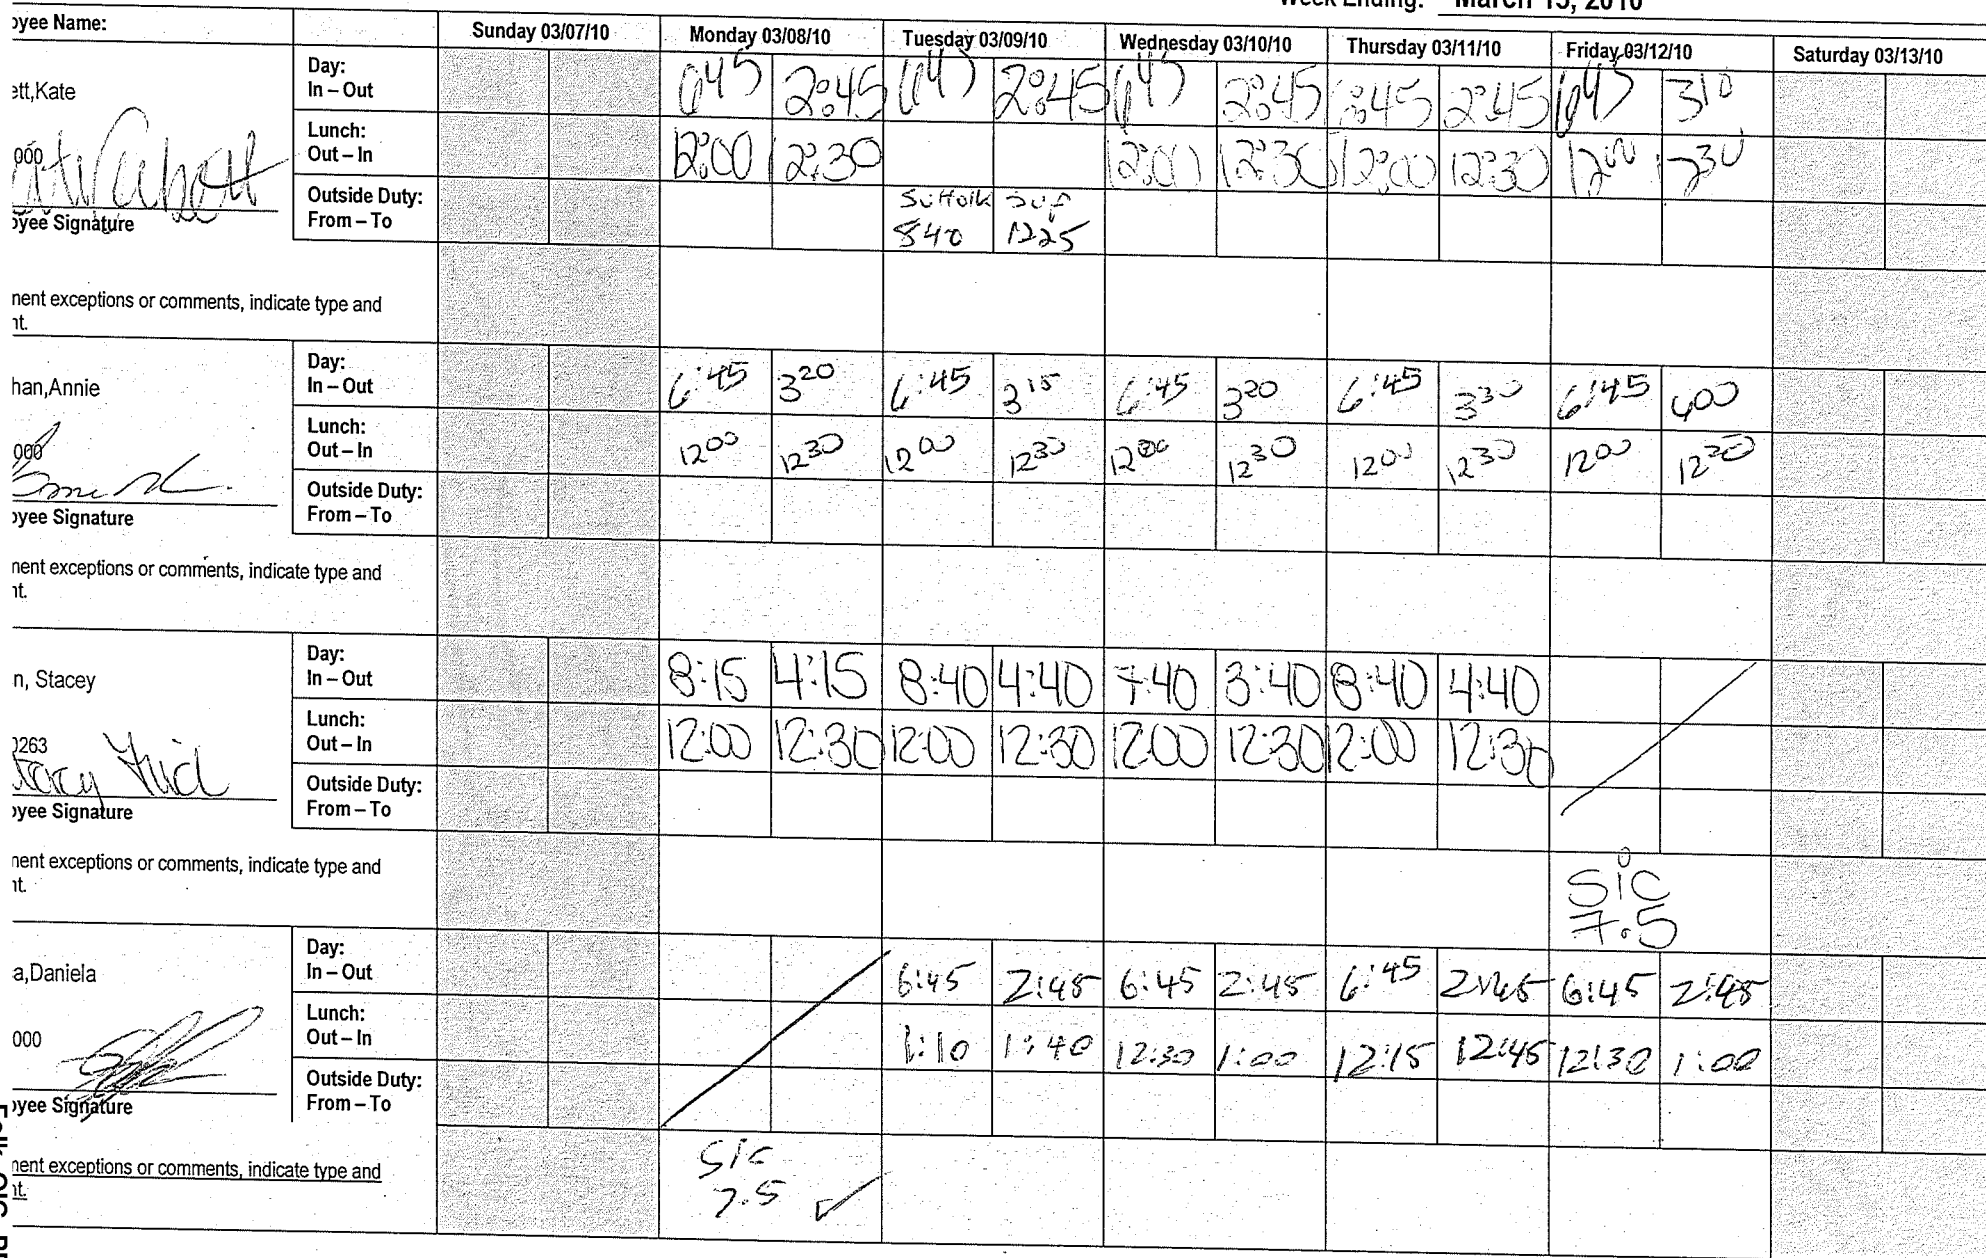 Week Ending: March 13, 2010
oyee Name: Sunday 03/07/10 Monday 03/08/10 Tuesday 03/09/10 Wednesday 03/10/10 Thursday 03/11/10 Friday 03/12/10 Saturday 03/13/10
ett,Kate
Day:
In – Out 645 2:45 645 2:45 645 2:45 6:45 2:45 645 310
000
Lunch:
Out – In 12:00 12:30 12:00 12:30 12:00 12:30 1200 1230
oyee Signature
Outside Duty: Suffolk sup
From – To 840 1225
ment exceptions or comments, indicate type and
nt.
han,Annie
Day:
In – Out 6:45 320 6:45 315 6:45 320 6:45 330 6:45 400
000
Lunch:
Out – In 1200 1230 1200 1230 1200 1230 1200 1230 1200 1230
oyee Signature
Outside Duty:
From – To
ment exceptions or comments, indicate type and
nt.
n, Stacey
Day:
In – Out 8:15 4:15 8:40 4:40 7:40 3:40 8:40 4:40
0263
Lunch:
Out – In 12:00 12:30 12:00 12:30 12:00 12:30 12:00 12:30
oyee Signature
Outside Duty:
From – To
ment exceptions or comments, indicate type and
nt.
SIC
7.5
a,Daniela
Day:
In – Out 6:45 2:45 6:45 2:45 6:45 2:45 6:45 2:45
000
Lunch:
Out – In 1:10 1:40 12:30 1:00 12:15 12:45 12:30 1:00
oyee Signature
Outside Duty:
From – To
ment exceptions or comments, indicate type and
nt.
SIC
7.5